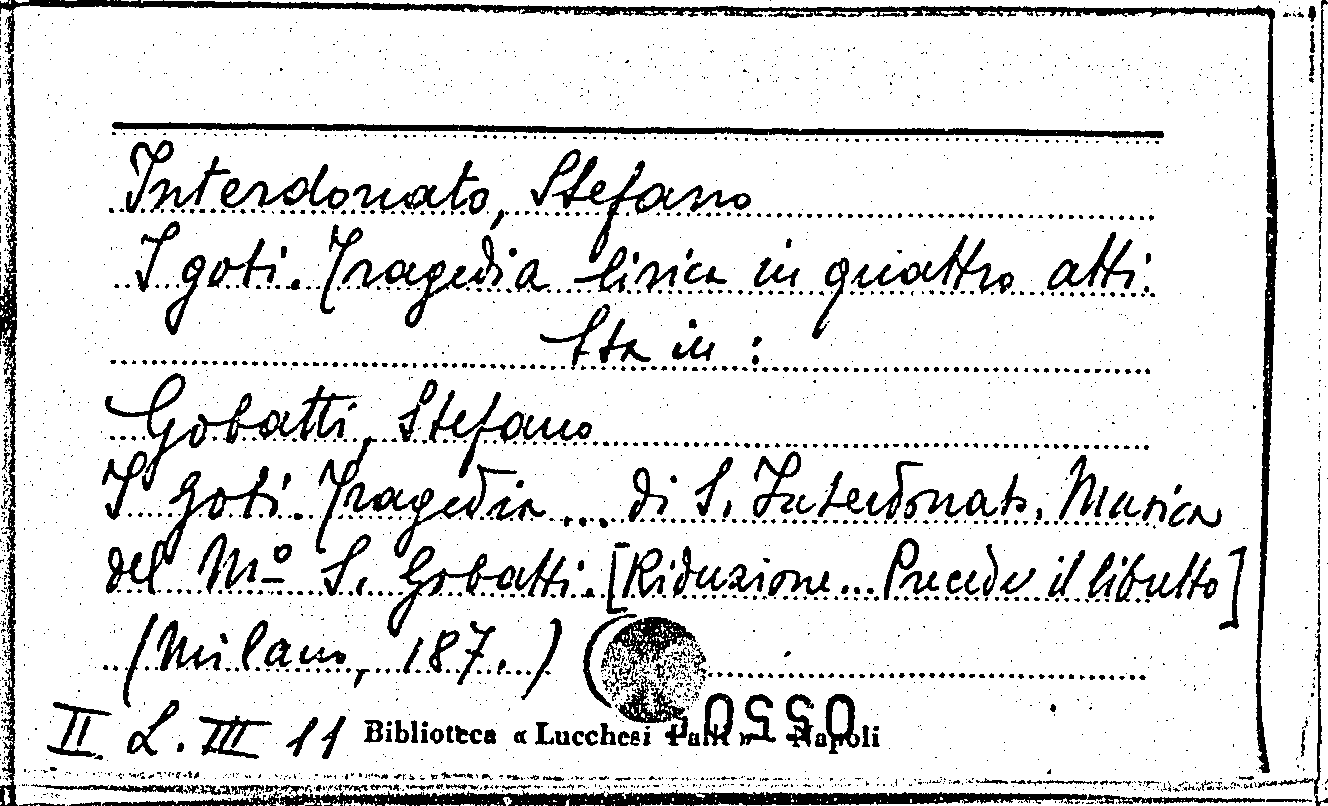 Interdonato, Stefano
I goti. Tragedia lirica in quattro atti.
Sta in :
Gobatti, Stefano
I Goti. Tragedia ... di S. Interdonato. Musica
del Mº S. Gobatti. [Riduzione... Precede il libretto]
(Milano, 187.) (
II L. III 11 Biblioteca « Lucchesi Palli » - Napoli